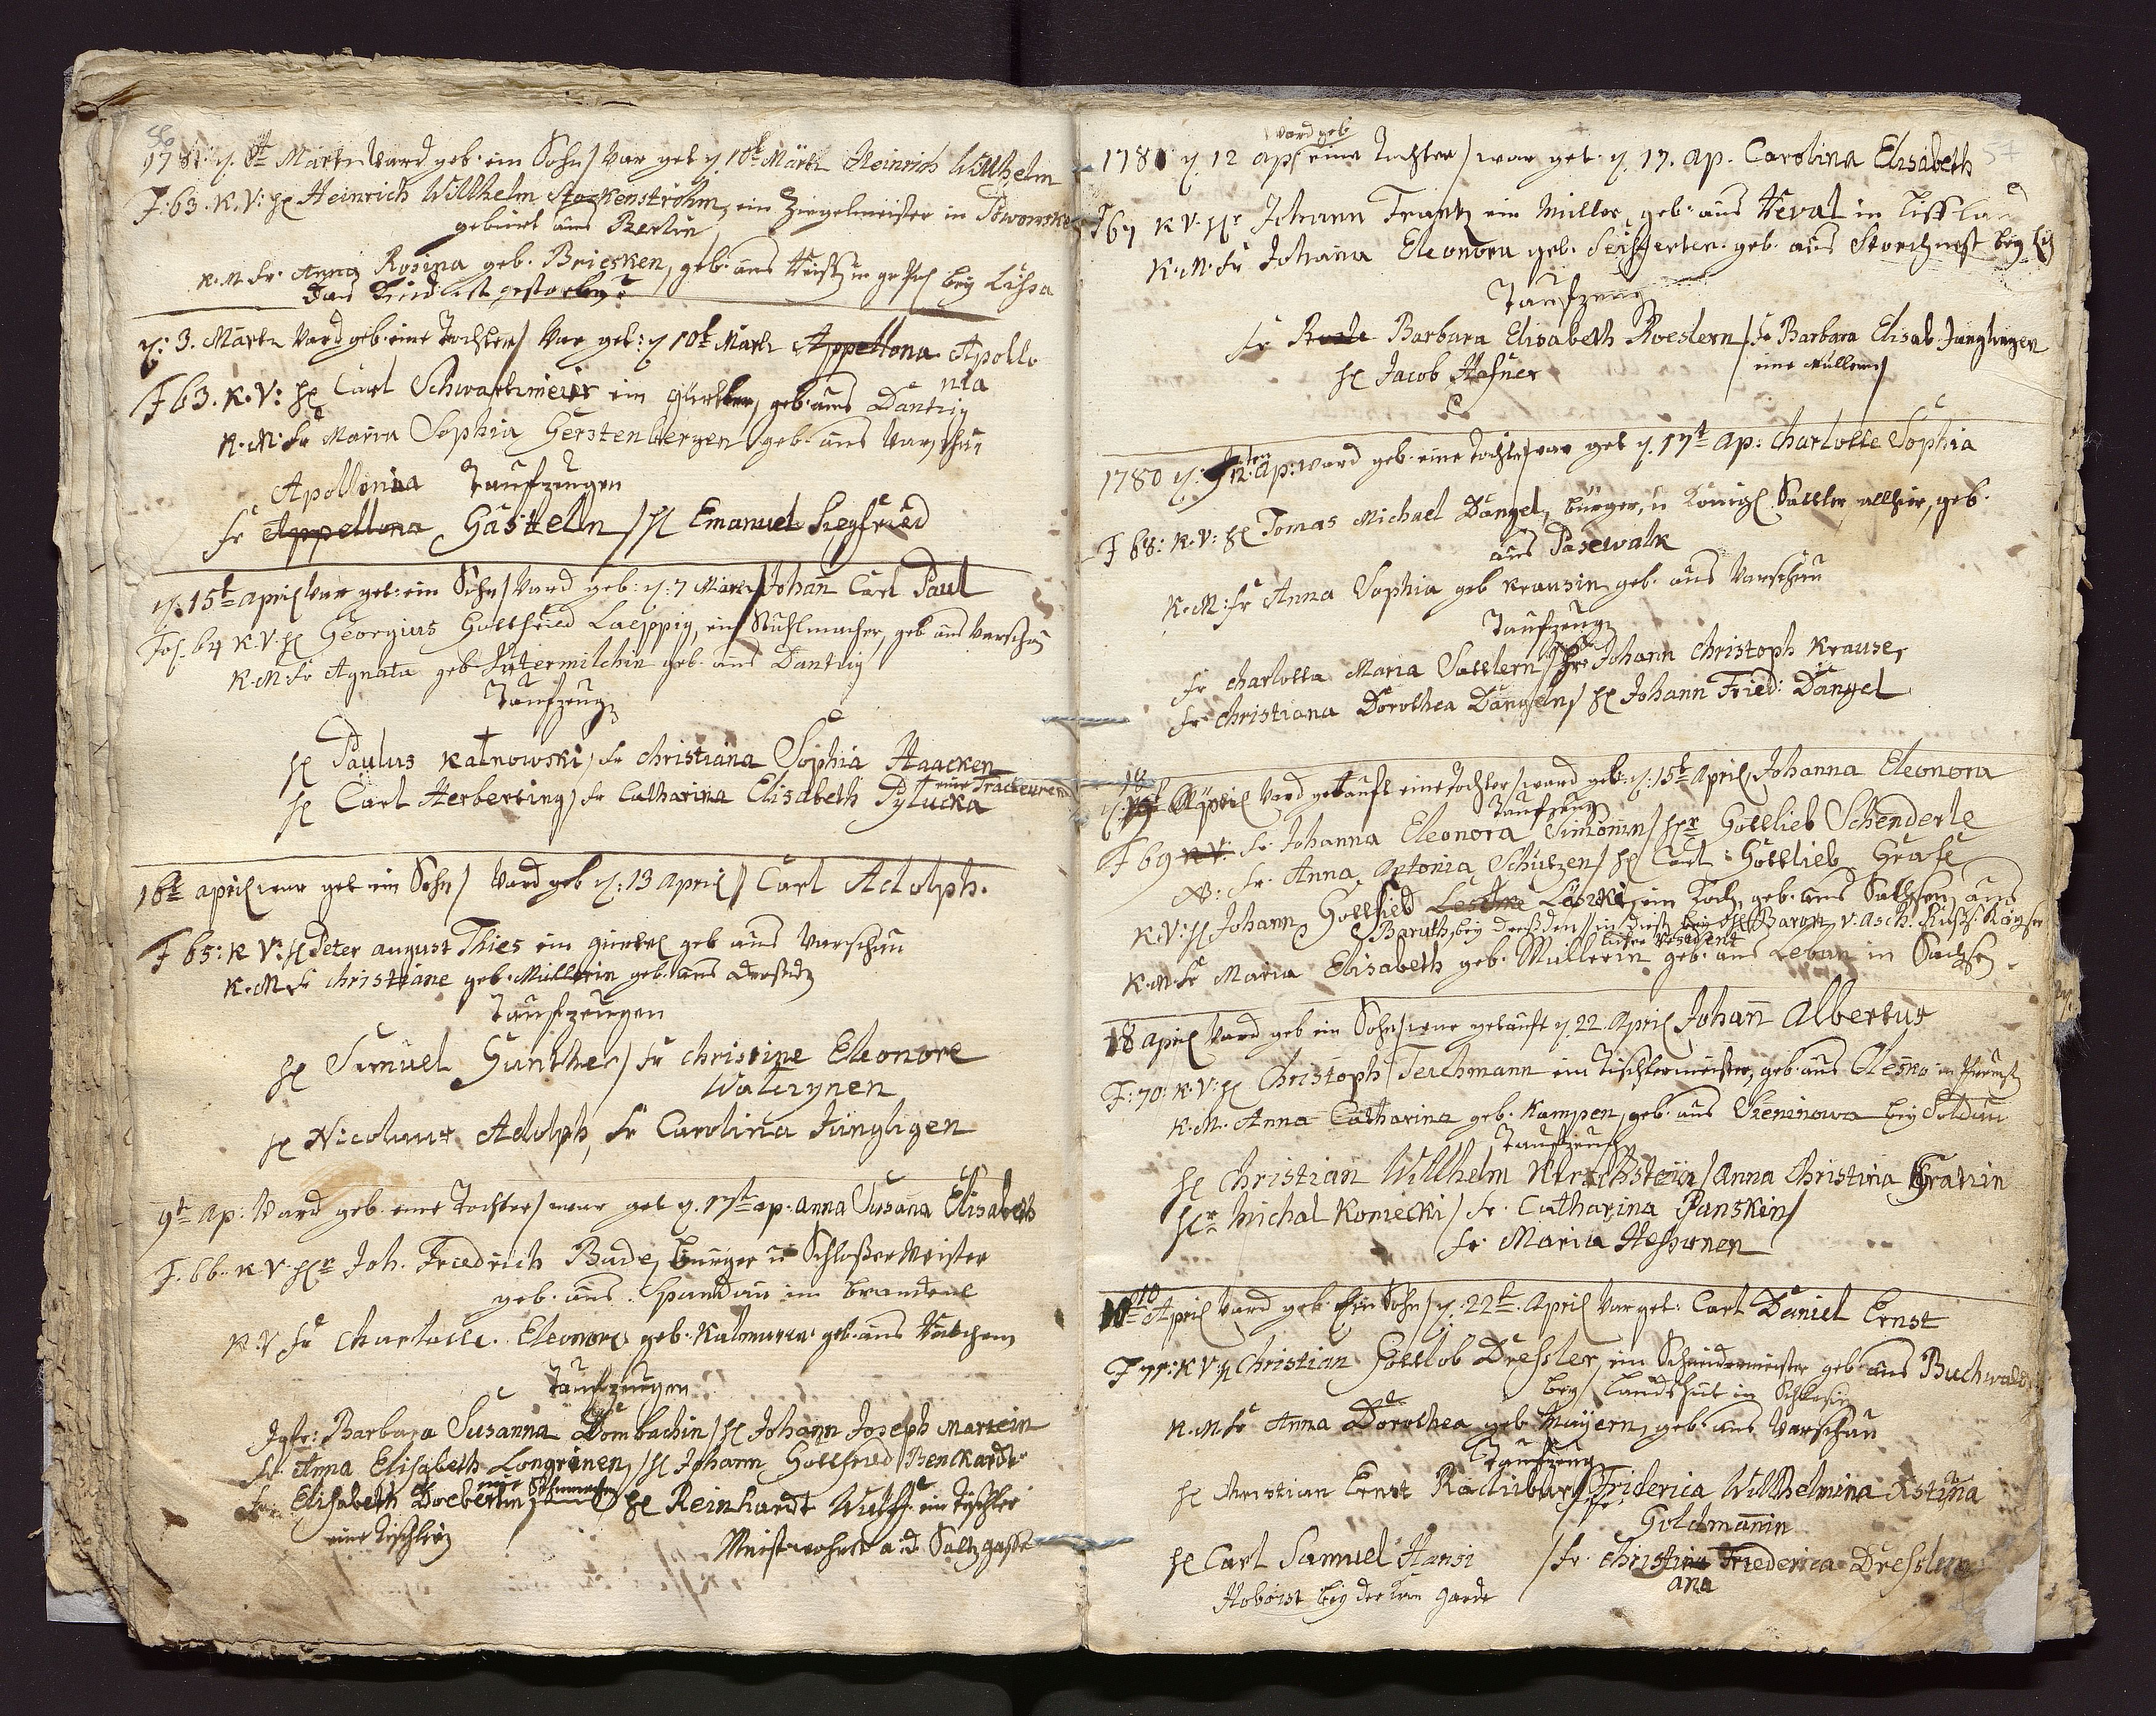 56
1781 d. 8t Martz Ward geb. ein Sohn / War get d. 10t Märtz Heinrich Willhelm
F: 63. K. V: H Heinrich Willhelm Stockenströhm, ein Ziegelmeister in
gebürt aus Berlin
K. M. Fr. Anna Rosina geb. Briesken, geb. aus bey Lissa
Das Kind ist gestorben
d: 3. Martz Ward geb. eine Tochter / War get: d 10t Martz Appellona Apollo
nia
F 63. K. V: H Carl Schwartzmeier ein gürtler, geb. aus Dantzig
K. M: Fr Maria Sophia Gerstenbergen geb. aus Varschau
Apollonia Taufzeugen
Fr Appellona Gästeln / H Emanuel Siegfried
d. 15t april War get. ein Sohn / Ward geb: d. 7 Martz / Johan Carl Paul
Fol. 64 K. V. H Georgius Gottfried Laeppig, ein Stuhlmacher, geb aus Varschau
K. M. Fr Agnata geb. Lütermilchin geb. aus Dantzig
Taufzeug
H Paulus Katnowski / Fr Christiana Sophia Haacken
eine Tracteuren
H Carl Herberting / Fr Catharina Elisabeth Pytucka
16t april war get ein Sohn / Ward geb d. 13 April / Carl Adolph.
F 65: K V: H Peter august Thies ein gürtel geb aus Varschau
K. M Fr Christiane geb. Müllerin geb. aus
Taufzeugen
H Samuel Gunther / Fr Christine Eleonore
Waltzynen
H Nicolaus Adolph, Fr Carolina Jüngligen
9t Ap: Ward geb. eine Tochter / war get d. 17t ap. anna Susana Elisabeth
F. 66. K. V. H Joh. Friedrich Bude, bürger u Schloßer Meister
geb. aus Spandau im brandenb
K. V Fr Charlotte Eleonore geb. geb. aus
Taufzeugen
Jgfr: Barbara Susanna Dombachin / H Johann Joseph Martein
Fr. Anna Elisabeth Longrinen, / H Johann Gottfried Benckardt
Fr. Elisabeth Doebertin, H Reinhardt Wulff, ein Tischler
eine Tischlerin
Meist wohnt a. d. Saltzgasse
57
ward geb
1780 d. 12 apl eine Tochter / war get. d. 17. ap. Carolina Elisabeth
F 67 K V. H Johann Frantz ein Müller, geb. aus Reval in Liffland
K. M. Fr Johana Eleonora geb. Seifferten. geb. aus Storchnest bey
Taufzeug
Fr Rosle Barbara Elisabeth Roeslern / Fr Barbara Elisab. Junglingen
H Jacob Hafner
eine Müllerin /
1780 d: 12ten Ap: ward geb. eine Tochter / war get d. 17t Ap: Charlotte Sophia
F 68: K. V: H Tomas Michael Dangel, bürger, u Königl. Sattler, allhier, geb.
aus Pasewalk
K. M: Fr Anna Sophia geb Krausin geb. aus Varschau
Taufzeug
Fr Charlotta Maria Sattlern / H Johann Christoph Krause,
Fr Christiana Dorothea Dangeln / H Johann Fried: Dangel
18
d. April Ward getauft eine Tochter / ward geb. d: 15t April, Johanna Eleonora
Taufzeug
F 69 K V: Fr Johanna Eleonora Simonin / H Gottlieb Schenderle
NB: Fr. Anna Antonia Schützen / H Carl Gottlieb Grafe
K. V: H Johann Gottlieb Leszke Leszke, ein Koch geb. aus Sachsen aus
Baruth bey Dreßden / in Dienst bey H Baron v. Asch. Rußisch Kayser
licher Resident
K. M. Fr Maria Elisabeth geb. Müllerin geb. aus Lebau in Sachsen
18 April Ward geb ein Sohn / war getauft d 22. April Johan Albertus
F: 70: K. V: H Christoph Teichmann ein Tischlermeister, geb. aus Olesko in
K. M. Anna Catharina geb. Kampen, geb. aus Seninowa bey Soldau
Taufzeug
H Christian Willhelm Kirschstein / Anna Christina Gravin
H Michal Koniecki / Fr. Catharina Panskin /
Fr Maria Hessenen
10
April Ward geb. Ein Sohn / d: 22t. April War get. Carl Daniel Ernst
F 71: K V H Christian Gottlob Dressler, ein Schneidermeister geb. aus Buchwald
bey Landshut in Schlesien
K. M Fr Anna Dorothea geb Mayern, geb. aus Varschau
Taufzeug
H Christian Ernst / Friderica Willhelmina Kstina
Goldmanin
H Carl Samuel Hansi / Fr. Christina Friederica Dressler
ana
Hoboist bey der Garde